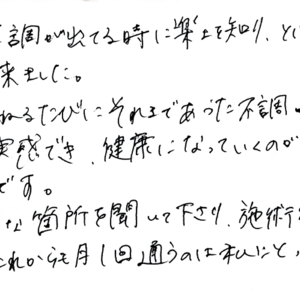 調が出てる時に楽士を知り、とい
来ました。
ねるたびにそれまであった不調
実感でき、健康になっていくのが
です。
な箇所を聞いて下さり、施術
これからも月1回通うのは私にと、